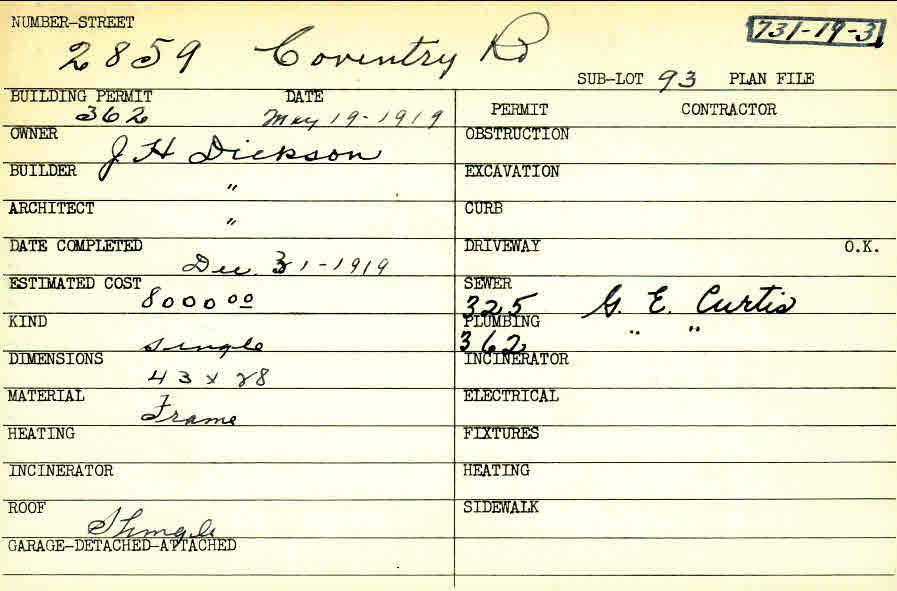 NUMBER-STREET
2859 Coventry Rd
731-19-3
SUB-LOT 93 PLAN FILE
BUILDING PERMIT DATE
362 May 19-1919
PERMIT CONTRACTOR
OWNER J H Dickson
OBSTRUCTION
BUILDER "
EXCAVATION
ARCHITECT "
CURB
DATE COMPLETED
Dec. 31-1919
DRIVEWAY O.K.
ESTIMATED COST
8000 00
SEWER
325 G. E. Curtis
KIND
single
PLUMBING
362 " "
DIMENSIONS
43 x 28
INCINERATOR
MATERIAL
Frame
ELECTRICAL
HEATING
FIXTURES
INCINERATOR
HEATING
ROOF
Shingle
SIDEWALK
GARAGE-DETACHED-ATTACHED